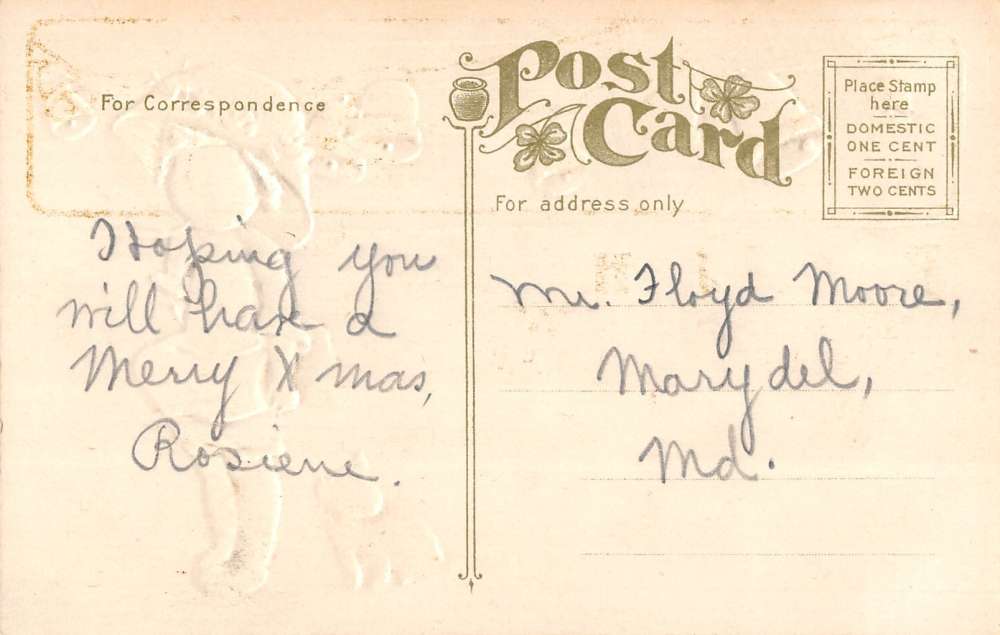 For Correspondence
Post Card
For address only
Place Stamp
here
DOMESTIC
ONE CENT
FOREIGN
TWO CENTS
Hoping you
will have a
Merry Xmas,
Rosiene.
Mr. Floyd Moore,
Marydel,
Md.